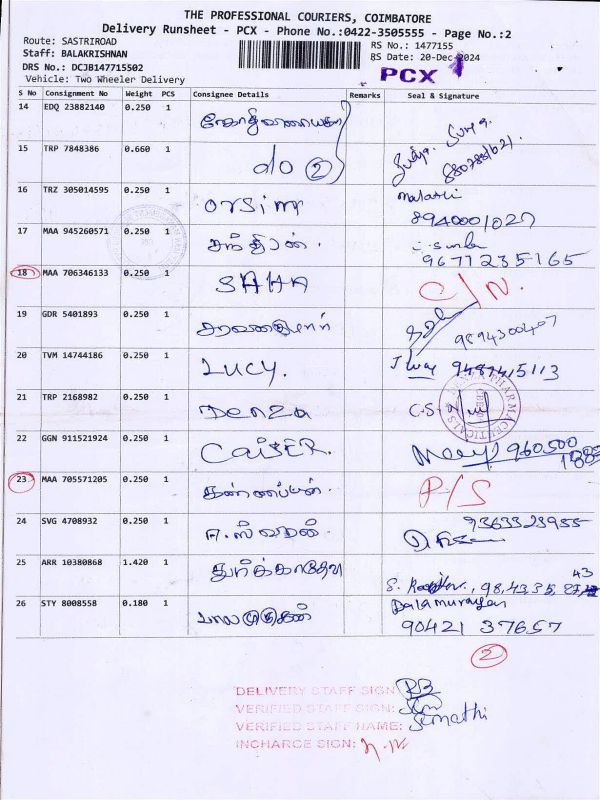 THE PROFESSIONAL COURIERS, COIMBATORE
Delivery Runsheet - PCX - Phone No.:0422-3505555 - Page No.:2
Route: SASTRIROAD
RS No.: 1477155
Staff: BALAKRISHNAN
BS Date: 20-Dec-2024
DRS No.: DCJB147715502
PCX
Vehicle: Two Wheeler Delivery
S No Consignment No Weight PCS Consignee Details Remarks Seal & Signature
14 EDQ 23882140 0.250 1
15 TRP 7848386 0.660 1 do 2
16 TRZ 305014595 0.250 1 Malathi
8940001027
17 MAA 945260571 0.250 1 சந்திரன்.
9671235165
18 MAA 706346133 0.250 1 SAHA C/N.
19 GDR 5401893 0.250 1 சரவணகுமார் 9894300407
20 TVM 14744186 0.250 1 LUCY. 9487415113
21 TRP 2168982 0.250 1 Denza C.S.
22 GGN 911521924 0.250 1 960500
23 MAA 705571205 0.250 1 கண்ணப்பன். P/S
24 SVG 4708932 0.250 1 9363323955
25 ARR 10380868 1.420 1
26 STY 8008558 0.180 1 பாலமுருகன் Balamurugan
90421 37657
2
DELIVERY STAFF SIGN:
VERIFIED STAFF SIGN:
VERIFIED STAFF NAME: Sumathi
INCHARGE SIGN: